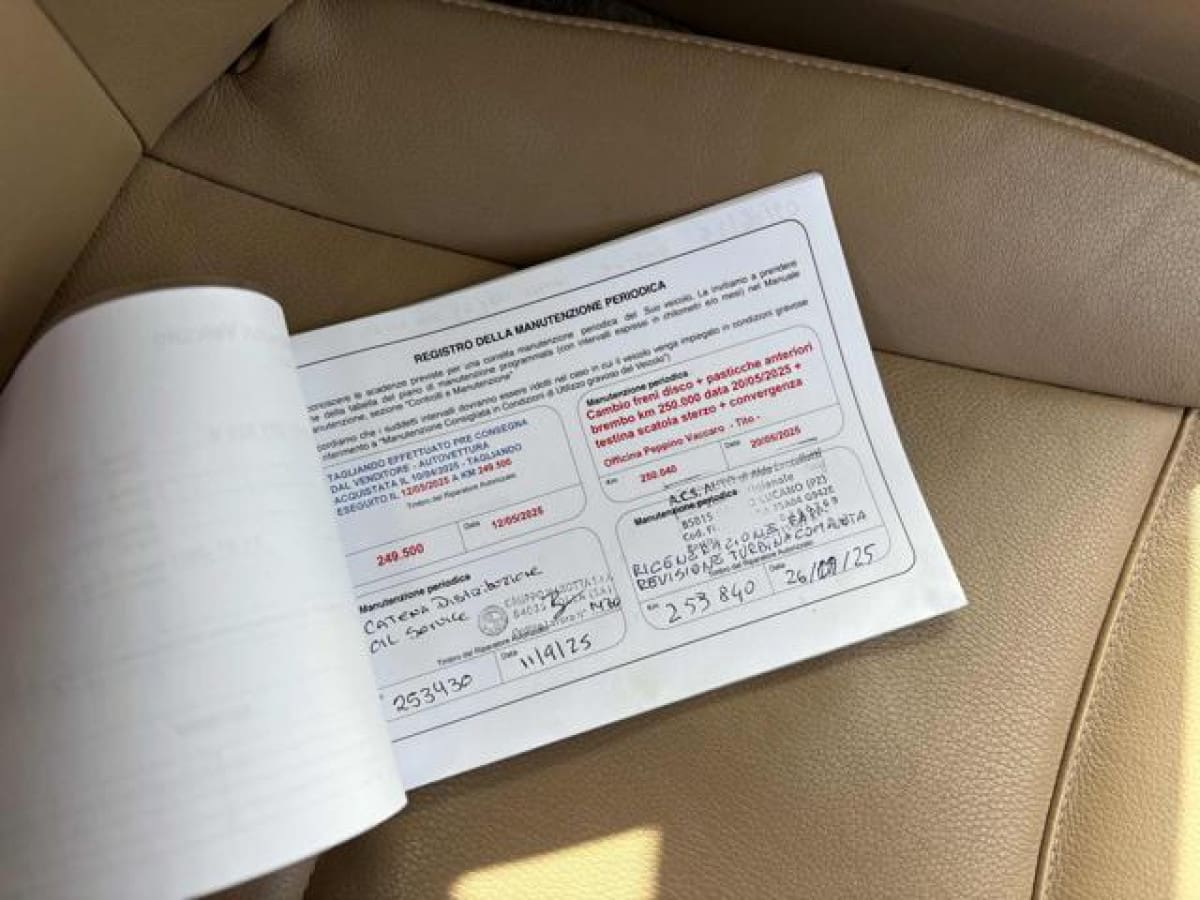 REGISTRO DELLA MANUTENZIONE PERIODICA
conoscere le scadenze previste per una corretta manutenzione periodica del Suo veicolo, La invitiamo a prendere
della tabella del piano di manutenzione programmata (con intervalli espressi in chilometri e/o mesi) nel Manuale
manutenzione, sezione "Controlli e Manutenzione"
cordiamo che i suddetti intervalli dovranno essere ridotti nel caso in cui il veicolo venga impiegato in condizioni gravose
riferimento a "Manutenzione Consigliata in Condizioni di Utilizzo gravoso del Veicolo")
TAGLIANDO EFFETTUATO PRE CONSEGNA
DAL VENDITORE - AUTOVETTURA
ACQUISTATA IL 10/04/2025 - TAGLIANDO
ESEGUITO IL 12/05/2025 A KM 249.500
Timbro del Riparatore Autorizzato
249.500
Data
12/05/2025
Manutenzione periodica
Cambio freni disco + pasticche anteriori
brembo km 250.000 data 20/05/2025 +
testina scatola sterzo + convergenza
Officina Peppino Vaccaro - Tito -
Km
250.040
Data
20/05/2025
Manutenzione periodica
CATENA DISTRIBUZIONE
OIL SERVICE
Timbro del Riparatore Autorizzato
253430
Data
11/9/25
Manutenzione periodica
A.C.S. AUTO di Aldo
85015
LUCANO (PZ)
Cod. Fi
RIGENERAZIONE
REVISIONE TURBINA COMPLETA
Timbro del Riparatore Autorizzato
Km
253840
Data
26/ /25